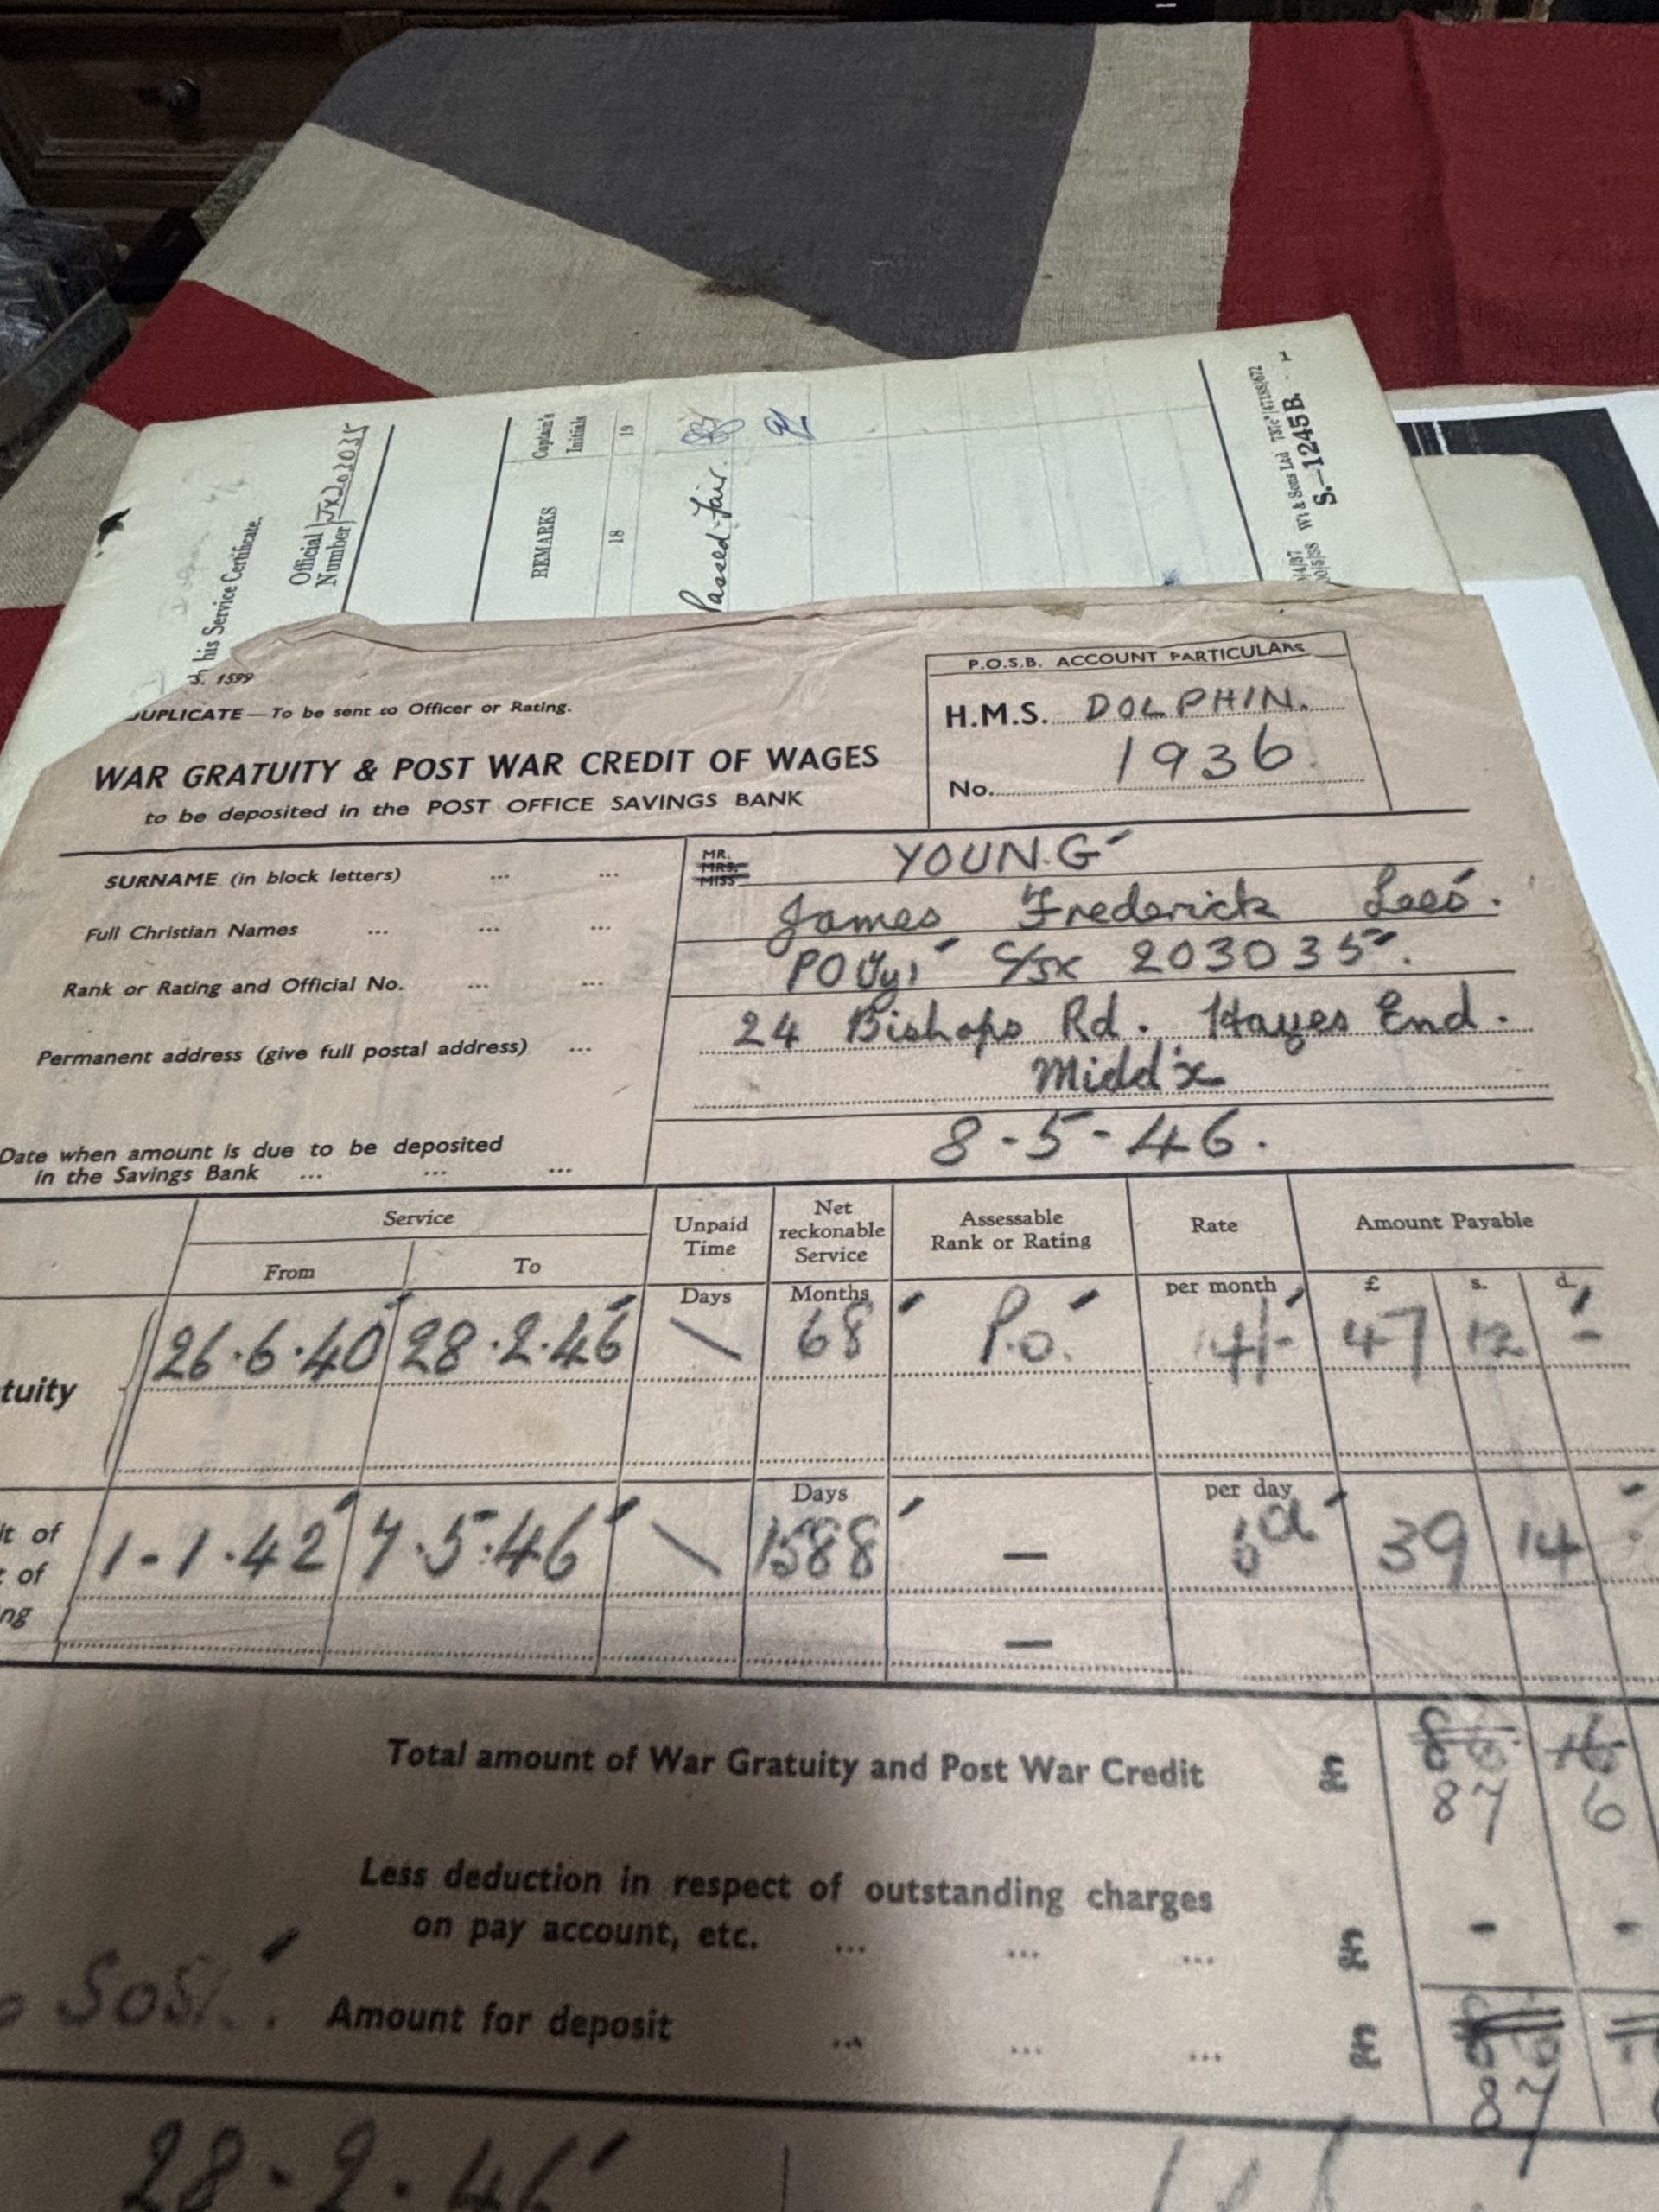 his Service Certificate.
Official Number JX203035
REMARKS
Captain's Initials
18
19
Passed-Fair.
Wt & Sons Ltd
S.—1245B.
S. 1599
DUPLICATE—To be sent to Officer or Rating.
WAR GRATUITY & POST WAR CREDIT OF WAGES
to be deposited in the POST OFFICE SAVINGS BANK
P.O.S.B. ACCOUNT PARTICULARS
H.M.S. DOLPHIN.
No. 1936.
SURNAME (in block letters) ... ... MR. MRS. MISS YOUNG
Full Christian Names ... ... ... James Frederick Lees.
Rank or Rating and Official No. ... ... PO C/JX 203035.
Permanent address (give full postal address) ... 24 Bishops Rd. Hayes End.
Midd'x
Date when amount is due to be deposited
in the Savings Bank ... ... ... 8-5-46.
Service
From
To
Unpaid Time
Net reckonable Service
Assessable Rank or Rating
Rate
Amount Payable
Days
Months
per month
£ s. d.
tuity
26.6.40 28.2.46 \ 68 P.O. 14/- 47 12 -
Days
per day
it of
of
ng
1-1-42 7.5.46 \ 1588 — 6d 39 14
—
Total amount of War Gratuity and Post War Credit £
87 6
Less deduction in respect of outstanding charges
on pay account, etc. ... ... ... £ - -
Amount for deposit ... ... ... £
87
28.2.46